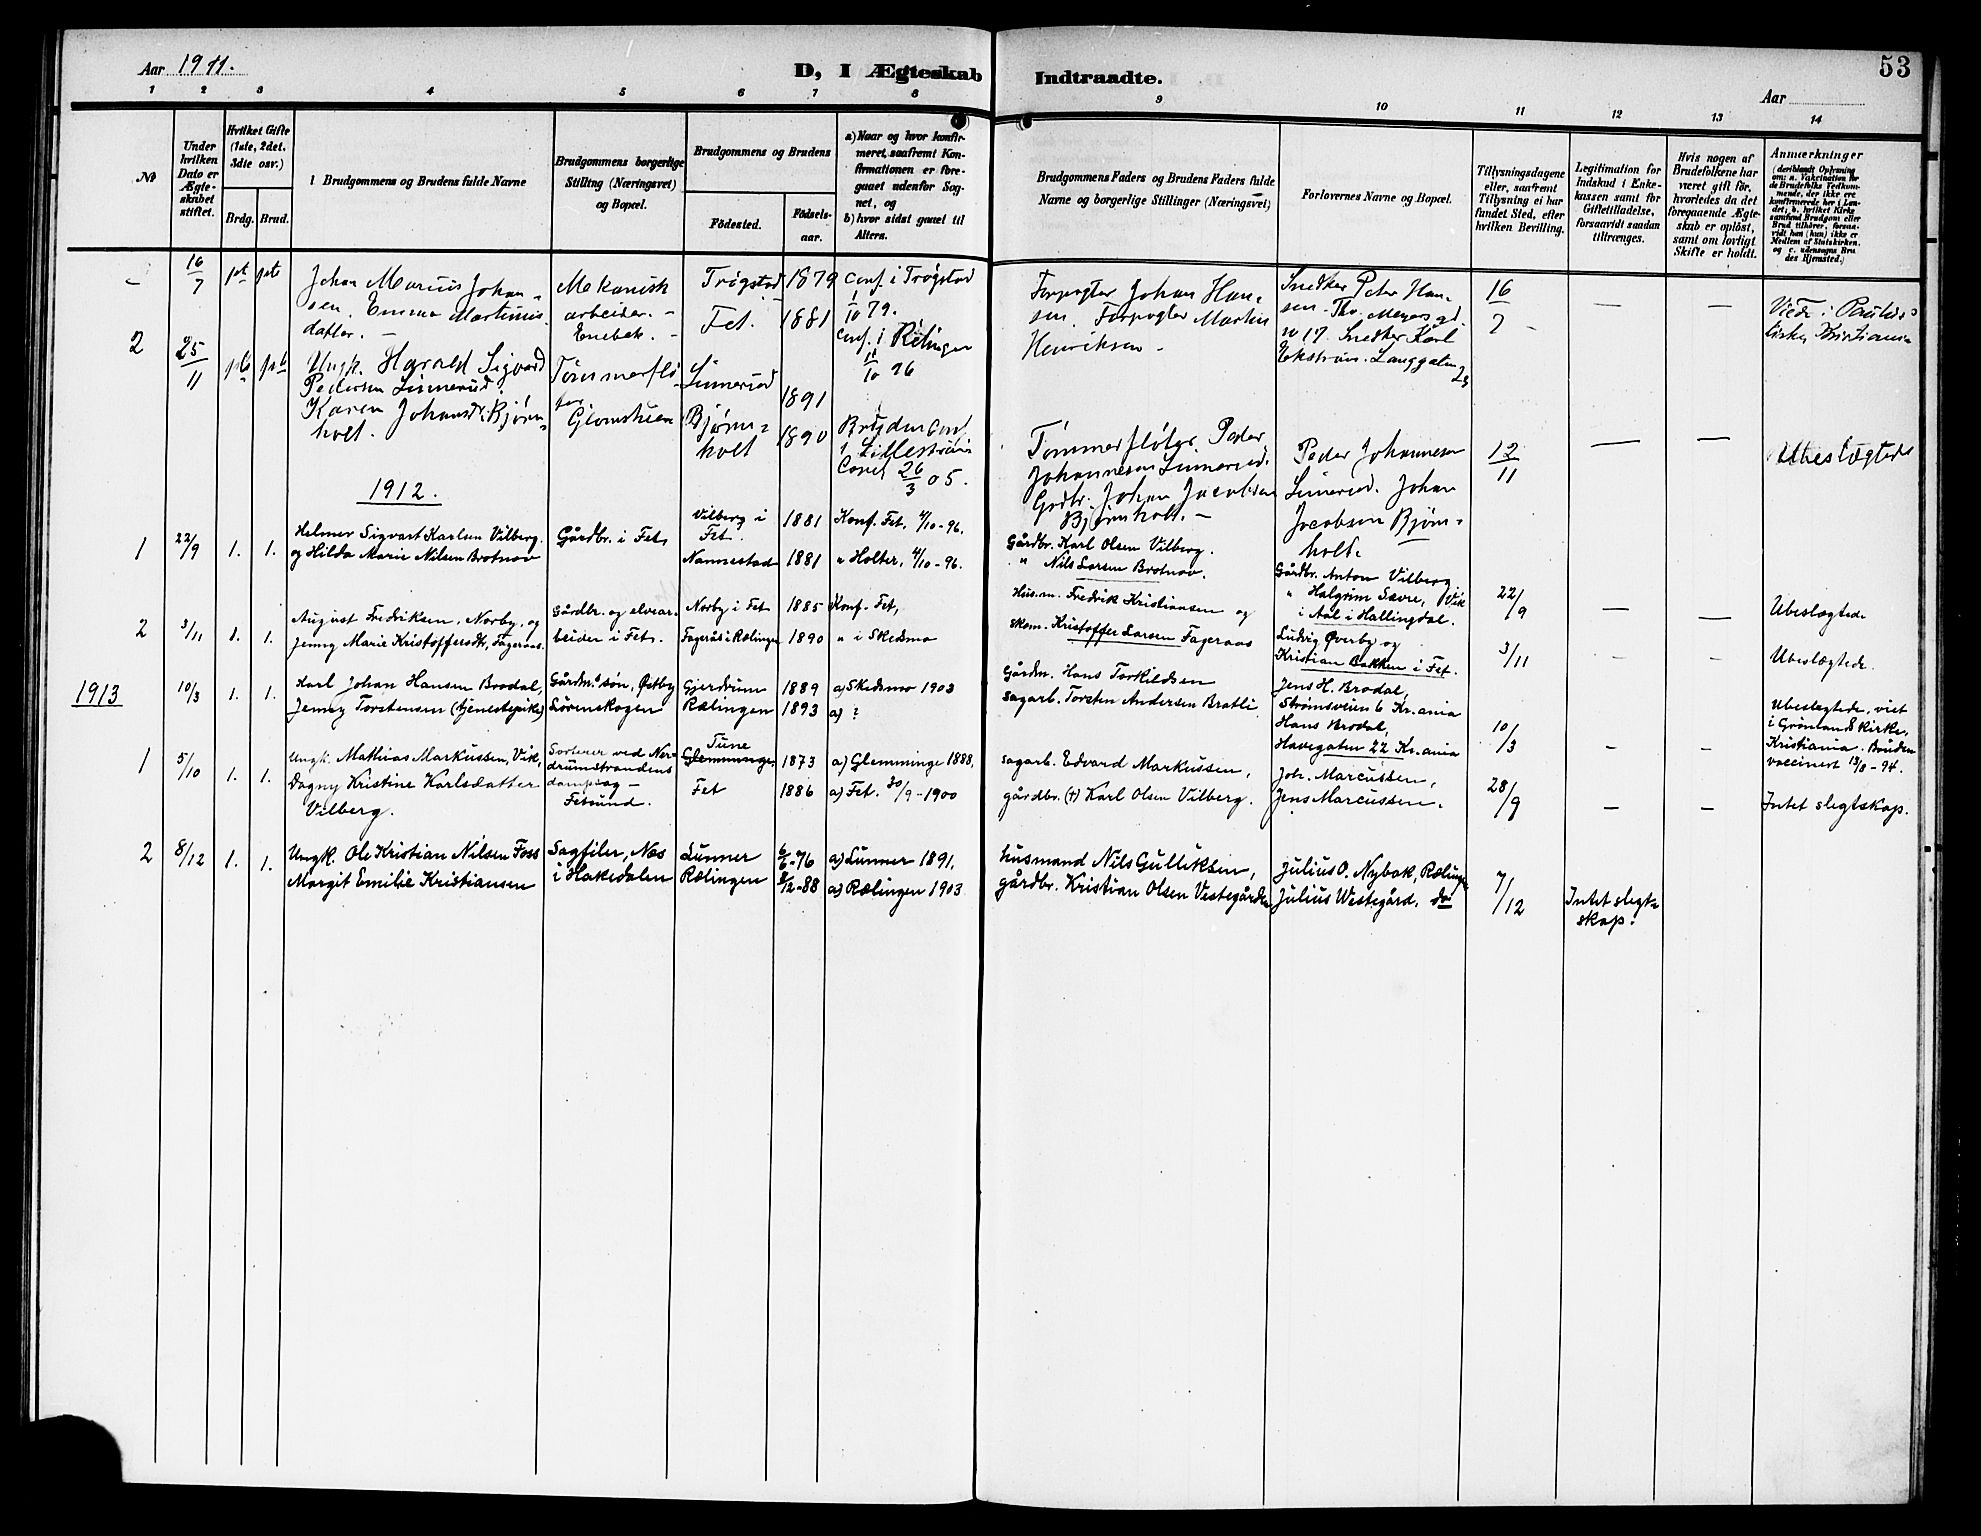 Aar 1911.
D, I Ægteskab Indtraadte.
53
Aar
1 2 3 4 5 6 7 8 9 10 11 12 13 14
No
Under
hvilken
Dato er
Ægte-
skabet
stiftet.
Hvilket Gifte
(1ste, 2det,
3die osv.)
Brdg. Brud.
Brudgommens og Brudens fulde Navne
Brudgommens borgerlige
Stilling (Næringsvei)
og Bopæl.
Brudgommens og Brudens
Fødested.
Fødsels-
aar.
a) Naar og hvor konfir-
meret, saafremt Kon-
firmationen er fore-
gaaet udenfor Sog-
net, og
b) hvor sidst gaaet til
Alters.
Brudgommens Faders og Brudens Faders fulde
Navne og borgerlige Stillinger (Næringsvei)
Forlovernes Navne og Bopæl.
Tillysningsdagene
eller, saafremt
Tillysning ei har
fundet Sted, efter
hvilken Bevilling.
Legitimation for
Indskud i Enke-
kassen samt for
Giftetilladelse,
forsaavidt saadan
tiltrænges.
Hvis nogen af
Brudefolkene har
været gift før,
hvorledes da det
foregaaende Ægte-
skab er opløst,
samt om lovligt
Skifte er holdt.
Anmærkninger
(deriblandt Oplysning
om: a. Vakcination for
de Brudefolks Vedkom-
mende, der ikke ere
konfirmerede her i Lan-
det, b. hvilket Kirke
samfund Brudgom eller
Brud tilhører, forsaa-
vidt han (hun) ikke er
Medlem af Statskirken,
og c. udensogns Bru
des Hjemsted.)
16/7
Johan Marius Johan-
sen. Emma Martinus
datter. -
Mekanisk
arbeider. -
Enebak. -
Trøgstad 1879
Fet. 1881
Conf. i Trøgstad
1/10 79.
Conf. i Rælingen
11/10 96
Forpagter Johan Han-
sen. Forpagter Martin
Henriksen -
Snedker Peter Han-
sen. Thv. Meyers gd.
no 17. Snedker Karl
Ekstrøm. Langgaten 23
16/7 -
— —
Viede i Paulus
kirke, Kristiania
2 25/11
Ungk. Harald Sigvard
Pedersen Linnerud
Karen Johansdr. Bjørn-
holt.
Tømmerflø-
ter
Glomsteien
Linnerud 1891
Bjørn-
holt 1890
Bruden conf.
i Lillestrøm
Capel 26/3 05.
Tømmerfløter Peder
Johannesen Linnerud.
Grdbr. Johan Jacobsen
Bjørnholt. -
Peder Johannesen
Linnerud. Johan
Jacobsen Bjørn-
holt.
12/11
— —
Ubeslægtede
1912.
1 22/9 1. 1.
Helmer Sigvart Karlsen Vilberg.
og Hilda Marie Nilsen Brotnov
Gårdbr. i Fet.
Vilberg i
Fet. 1881
Nannestad 1881
Konf. Fet, 4/10 - 96.
" Holter, 4/10 - 96.
Gårdbr. Karl Olsen Vilberg.
" Nils Larsen Brotnov.
Gårdbr. Anton Vilberg
" Halgrim Sævre, Vik
i Aal i Hallingdal.
22/9
— —
Ubeslægtede
2 3/11 1. 1.
August Fredriksen, Norby, og
Jenny Marie Kristoffersdtr, Fageraas.
Gårdbr. og elvear-
beider i Fet.
Norby i Fet 1885
Fagerås i Rælingen 1890
Konf. Fet,
" i Skedsmo
Husm. Fredrik Kristiansen og
skom. Kristoffer Larsen Fageraas
Ludvig Øverby og
Kristian Bakken i Fet.
3/11
— —
Ubeslægtede.
1913
10/3 1. 1.
Karl Johan Hansen Brodal,
Jenny Torstensen (tjenestepike)
Gårdm.s søn, Østby
Lørenskogen
Gjerdrum 1889
Rælingen 1893
a) Skedsmo 1903
a) ?
Gårdm. Hans Torkildsen
sagarb. Torsten Andersen Bratli
Jens H. Brodal,
Strømsveien 6 Kr.ania
Hans Brodal,
Havegaten 22 Kr.ania
10/3
— —
Ubeslegtede, viet
i Grønlands kirke,
Kristiania. Bruden
vaccinert 13/8 - 94.
1 5/10 1. 1.
Ungk. Mathias Markussen, Vik,
Dagny Kristine Karlsdatter
Vilberg.
Sorterer ved Ner-
drumstrandens
dampsag -
Fetsund.
Tune
Glemminge 1873
Fet 1886
a) Glemminge 1888,
a) Fet. 30/9 - 1900
sagarb. Edvard Markussen,
gårdbr. (†) Karl Olsen Vilberg.
Joh. Marcussen,
Jens Marcussen.
28/9
— —
Intet slegtskap.
2 8/12 1. 1.
Ungk. Ole Kristian Nilsen Foss
Margit Emilie Kristiansen
Sagfiler, Næs
i Hakedalen
Lunner 6/6 - 76
Rælingen 2/12 - 88
a) Lunner 1891,
a) Rælingen 1903
husmand Nils Gulliksen,
gårdbr. Kristian Olsen Vestegården
Julius O. Nybak, Rælingen
Julius Westegård, do
7/12
Intet slegt-
skap.